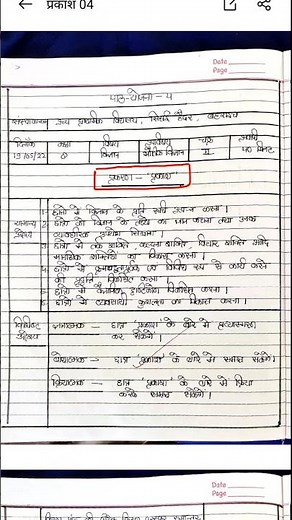 प्रकाश 04
Date
Page
पाठ-योजना - 4
उच्च प्राथमिक विद्यालय,
दिनाँक कक्षा विषय चक्र अवधि
19/05/22 8 विज्ञान भौतिक विज्ञान 40 मिनट
प्रकरण - 'प्रकाश'
सामान्य उद्देश्य
1. छात्रों में विज्ञान के प्रति रुचि उत्पन्न करना।
2. छात्रों को विज्ञान के तथ्यों का ज्ञान कराना तथा उनके
व्यावहारिक प्रयोग सिखाना।
3. छात्रों में तर्क शक्ति, कल्पना शक्ति, विचार शक्ति आदि
मानसिक शक्तियों का विकास करना।
4. छात्रों में एवं विधिवत रूप से कार्य करने
की प्रवृत्ति विकसित करना।
5. छात्रों में वैज्ञानिक दृष्टिकोण विकसित करना।
6. छात्रों में कुशलता का विकास करना।
विशिष्ट उद्देश्य
ज्ञानात्मक - छात्र 'प्रकाश' के बारे में
कर सकेंगे।
बोधात्मक - छात्र 'प्रकाश' के बारे में समझ सकेंगे।
क्रियात्मक - छात्र 'प्रकाश' के बारे में क्रिया
करके समझ सकेंगे।
Date
Page